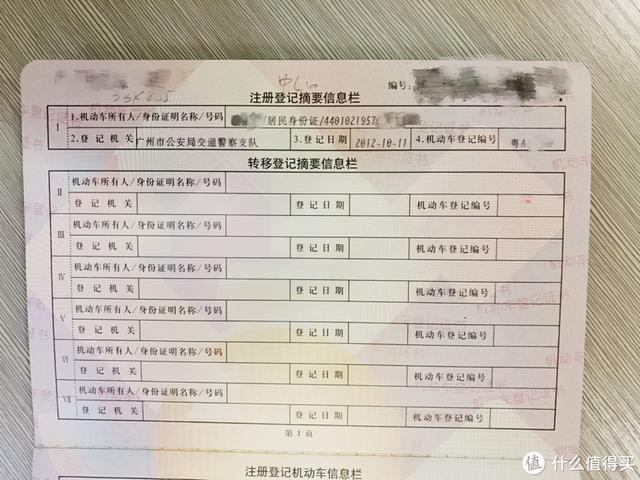 编号:
注册登记摘要信息栏
I 1.机动车所有人/身份证明名称/号码 /居民身份证/4401021957
2.登记机关 广州市公安局交通警察支队 3.登记日期 2012-10-11 4.机动车登记编号 粤A
转移登记摘要信息栏
II 机动车所有人/身份证明名称/号码
登记机关 登记日期 机动车登记编号
III 机动车所有人/身份证明名称/号码
登记机关 登记日期 机动车登记编号
IV 机动车所有人/身份证明名称/号码
登记机关 登记日期 机动车登记编号
V 机动车所有人/身份证明名称/号码
登记机关 登记日期 机动车登记编号
VI 机动车所有人/身份证明名称/号码
登记机关 登记日期 机动车登记编号
VII 机动车所有人/身份证明名称/号码
登记机关 登记日期 机动车登记编号
第1页
注册登记机动车信息栏
值 什么值得买